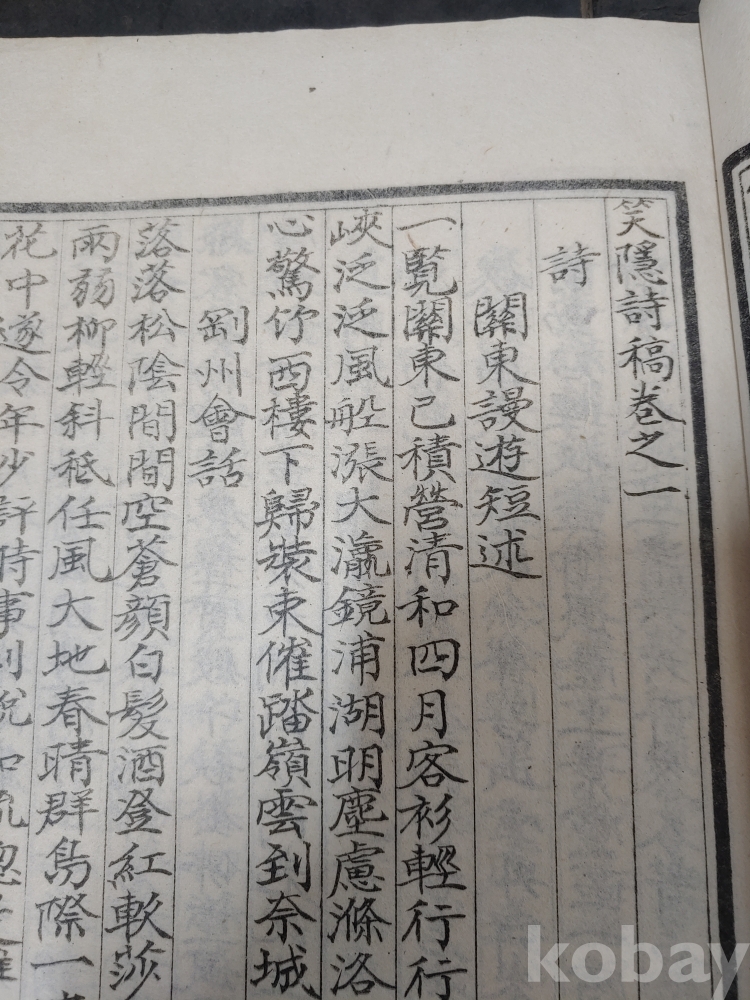 笑隱詩稿卷之一
詩
關東謾遊短述
一覽關東已積營清和四月客衫輕行行
峽泛泛風舩漲大瀛鏡浦湖明塵慮滌洛
心驚竹西樓下歸裝束催踏嶺雲到奈城
劉州會話
落落松陰間間空蒼顔白髮酒登紅軟莎
兩弱柳輕斜秪任風大地春晴群島際一
花中遂令年少評時事則說如流忽
kobay